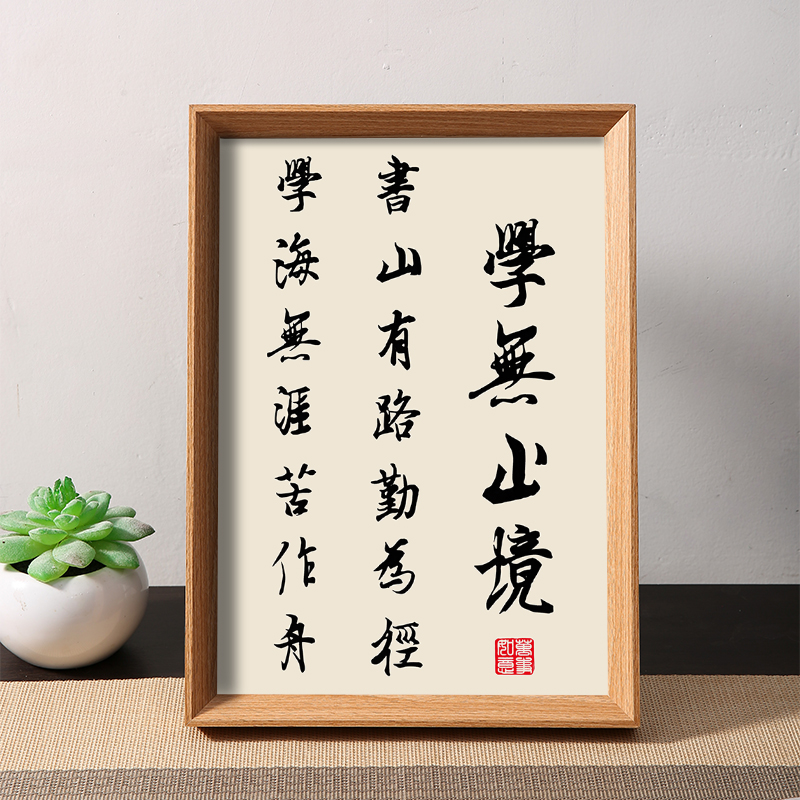 學無止境
書山有路勤為徑
學海無涯苦作舟
萬事如意